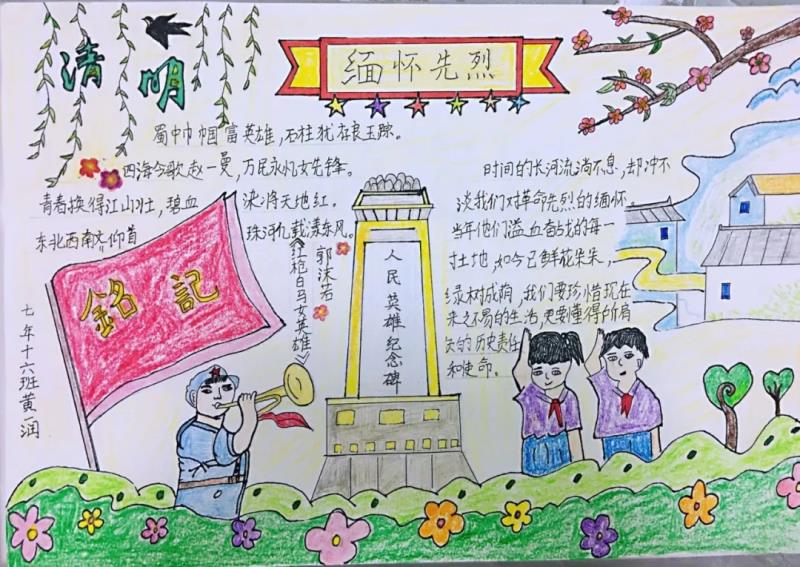 清明
缅怀先烈
蜀中巾帼富英雄，石柱犹存良玉踪。
四海今歌赵一曼，万民永忆女先锋。
青春换得江山壮，碧血 染将天地红。
东北西南齐仰首 珠河九载漾东风。
《红枪白马女英雄》
郭沫若
铭記
七年十六班黄润
人民英雄纪念碑
时间的长河流淌不息，却冲不
淡我们对革命先烈的缅怀。
当年他们溢血奋战的每一
土地，如今已鲜花朵朵，
绿树成荫，我们要珍惜现在
来之不易的生活，更要懂得
的历史责任
和使命。